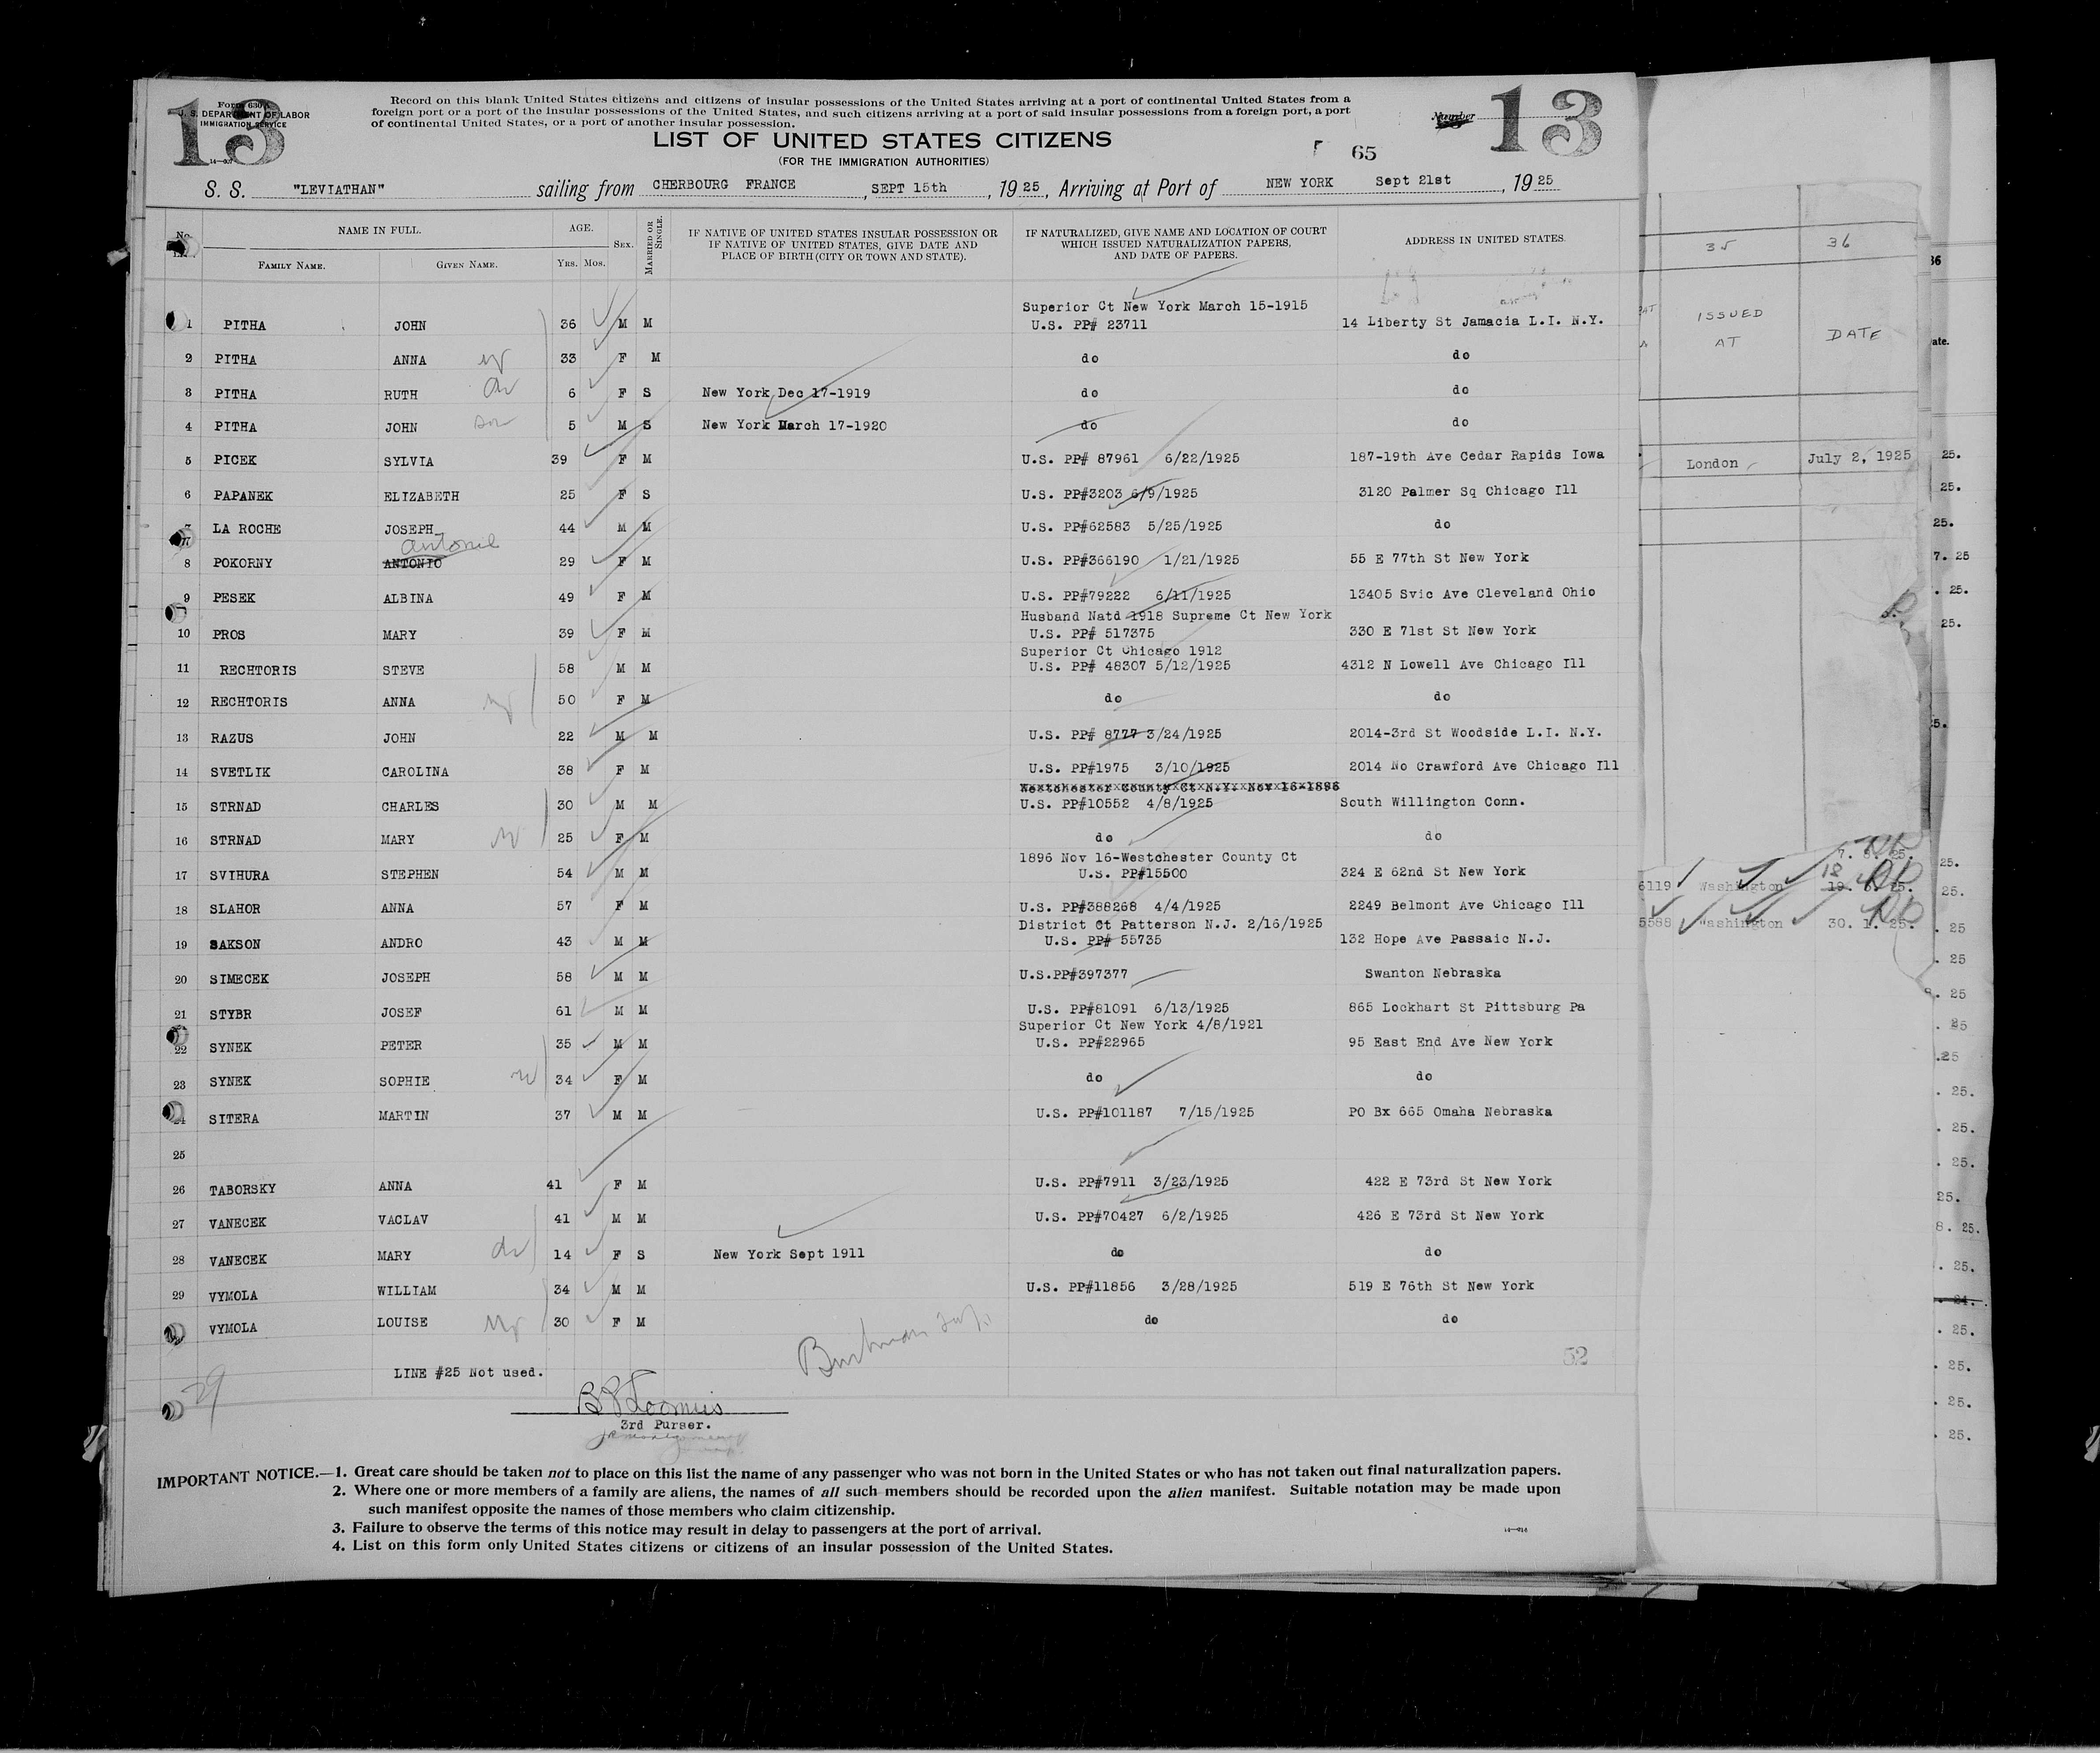 13
Form 630
U. S. DEPARTMENT OF LABOR
IMMIGRATION SERVICE
Record on this blank United States citizens and citizens of insular possessions of the United States arriving at a port of continental United States from a
foreign port or a port of the insular possessions of the United States, and such citizens arriving at a port of said insular possessions from a foreign port, a port
of continental United States, or a port of another insular possession.
Number 13
LIST OF UNITED STATES CITIZENS
(FOR THE IMMIGRATION AUTHORITIES)
65
S. S. "LEVIATHAN" sailing from CHERBOURG FRANCE, SEPT 15th, 1925, Arriving at Port of NEW YORK Sept 21st, 1925
No. NAME IN FULL. AGE. SEX. MARRIED OR SINGLE. IF NATIVE OF UNITED STATES INSULAR POSSESSION OR IF NATIVE OF UNITED STATES, GIVE DATE AND PLACE OF BIRTH (CITY OR TOWN AND STATE). IF NATURALIZED, GIVE NAME AND LOCATION OF COURT WHICH ISSUED NATURALIZATION PAPERS, AND DATE OF PAPERS. ADDRESS IN UNITED STATES.
FAMILY NAME. GIVEN NAME. YRS. MOS.
Superior Ct New York March 15-1915
1 PITHA JOHN 36 M M U.S. PP# 23711 14 Liberty St Jamacia L.I. N.Y.
2 PITHA ANNA 33 F M do do
3 PITHA RUTH 6 F S New York Dec 17-1919 do do
4 PITHA JOHN son 5 M S New York March 17-1920 do do
5 PICEK SYLVIA 39 F M U.S. PP# 87961 6/22/1925 187-19th Ave Cedar Rapids Iowa
6 PAPANEK ELIZABETH 25 F S U.S. PP#3203 6/9/1925 3120 Palmer Sq Chicago Ill
7 LA ROCHE JOSEPH 44 M M U.S. PP#62583 5/25/1925 do
Antonie
8 POKORNY ANTONIO 29 F M U.S. PP#366190 1/21/1925 55 E 77th St New York
9 PESEK ALBINA 49 F M U.S. PP#79222 6/11/1925 13405 Svic Ave Cleveland Ohio
Husband Natd 1918 Supreme Ct New York
10 PROS MARY 39 F M U.S. PP# 517375 330 E 71st St New York
Superior Ct Chicago 1912
11 RECHTORIS STEVE 58 M M U.S. PP# 48307 5/12/1925 4312 N Lowell Ave Chicago Ill
12 RECHTORIS ANNA 50 F M do do
13 RAZUS JOHN 22 M M U.S. PP# 8777 3/24/1925 2014-3rd St Woodside L.I. N.Y.
14 SVETLIK CAROLINA 38 F M U.S. PP#1975 3/10/1925 2014 No Crawford Ave Chicago Ill
Westchester County Ct N.Y. Nov 16-1896
15 STRNAD CHARLES 30 M M U.S. PP#10552 4/8/1925 South Willington Conn.
16 STRNAD MARY 25 F M do do
1896 Nov 16-Westchester County Ct
17 SVIHURA STEPHEN 54 M M U.S. PP#15500 324 E 62nd St New York
18 SLAHOR ANNA 57 F M U.S. PP#388268 4/4/1925 2249 Belmont Ave Chicago Ill
District Ct Patterson N.J. 2/16/1925
19 SAKSON ANDRO 43 M M U.S. PP# 55735 132 Hope Ave Passaic N.J.
20 SIMECEK JOSEPH 58 M M U.S.PP#397377 Swanton Nebraska
21 STYBR JOSEF 61 M M U.S. PP#81091 6/13/1925 865 Lockhart St Pittsburg Pa
Superior Ct New York 4/8/1921
22 SYNEK PETER 35 M M U.S. PP#22965 95 East End Ave New York
23 SYNEK SOPHIE 34 F M do do
24 SITERA MARTIN 37 M M U.S. PP#101187 7/15/1925 PO Bx 665 Omaha Nebraska
25
26 TABORSKY ANNA 41 F M U.S. PP#7911 3/23/1925 422 E 73rd St New York
27 VANECEK VACLAV 41 M M U.S. PP#70427 6/2/1925 426 E 73rd St New York
28 VANECEK MARY 14 F S New York Sept 1911 do do
29 VYMOLA WILLIAM 34 M M U.S. PP#11856 3/28/1925 519 E 76th St New York
VYMOLA LOUISE 30 F M do do
52
LINE #25 Not used.
29
B P Loomis
3rd Purser.
IMPORTANT NOTICE.—1. Great care should be taken not to place on this list the name of any passenger who was not born in the United States or who has not taken out final naturalization papers.
2. Where one or more members of a family are aliens, the names of all such members should be recorded upon the alien manifest. Suitable notation may be made upon
such manifest opposite the names of those members who claim citizenship.
3. Failure to observe the terms of this notice may result in delay to passengers at the port of arrival.
4. List on this form only United States citizens or citizens of an insular possession of the United States.
35 36
ISSUED AT DATE
London July 2, 1925
7. 8. 25.
6119 Washington 18 19. 6. 25.
5588 Washington 30. 1. 25.